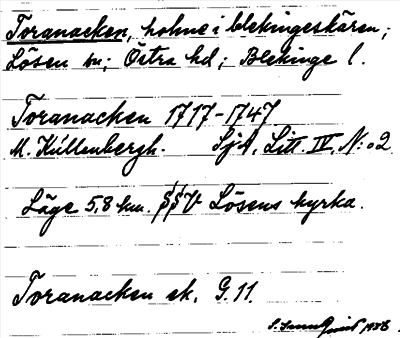 Toranacken, holme i blekingeskären;
Lösen sn; Östra hd; Blekinge l.
Toranacken 1717-1747
M. Kullenbergh. SjA. Litt. IV, N:o 2
Läge 5,8 km. SSV Lösens kyrka.
Toranacken ek. G.11.